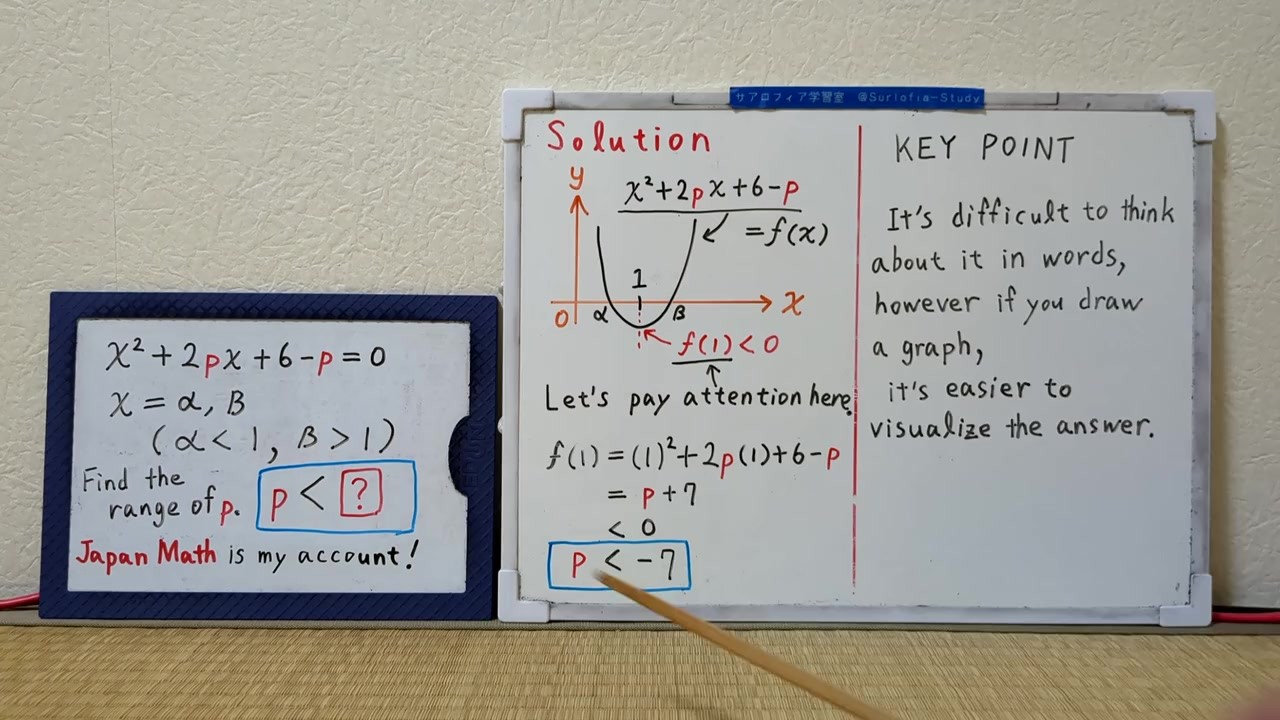 x²+2px+6-p=0
x=α, β
(α<1, β>1)
Find the
range of p. p < ?
Japan Math is my account!
サアロフィア学習室 @Surlofia-Study
Solution
y
x²+2px+6-p
=f(x)
1
0 α β x
f(1)<0
Let's pay attention here.
f(1)=(1)²+2p(1)+6-p
= p+7
< 0
p < -7
KEY POINT
It's difficult to think
about it in words,
however if you draw
a graph,
it's easier to
visualize the answer.